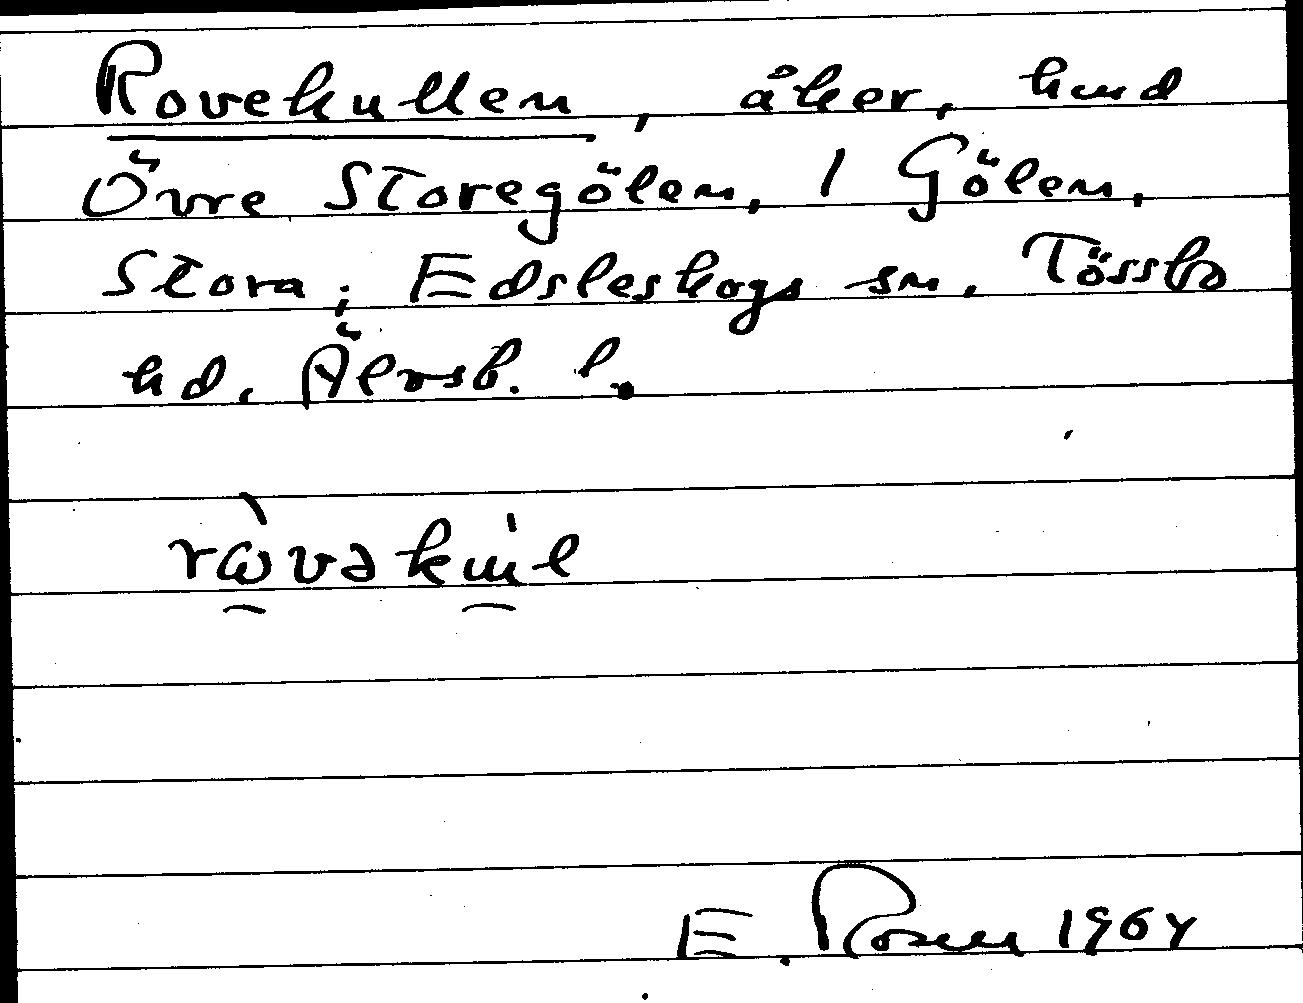 Rovekullen, åker, hmd
Övre Storegölen, 1 Gölen,
Stora; Edsleskogs sn, Tössbo
hd, Älvsb. l.
E. Rosen 1964